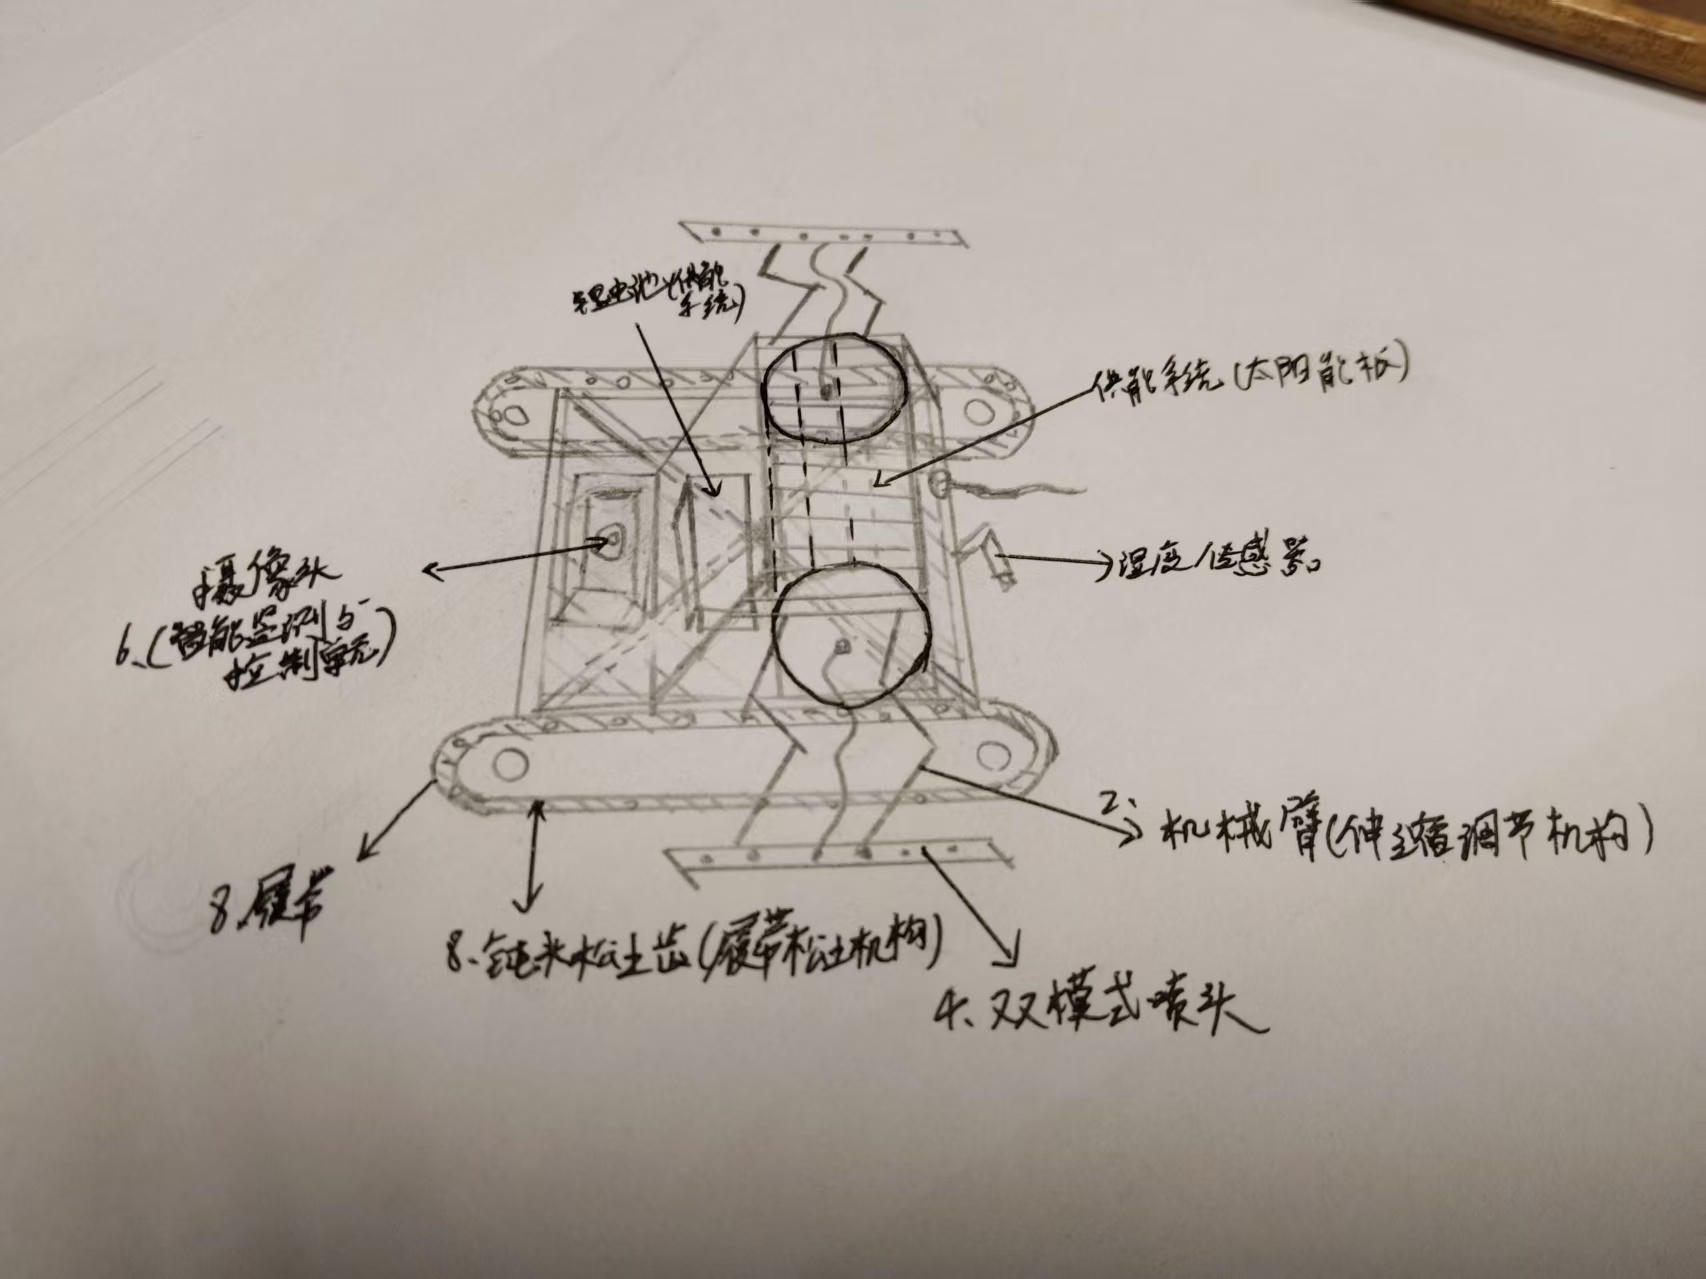 锂电池(供能
系统)
供能系统(太阳能板)
湿度传感器
摄像头
6、(智能监测与
控制单元)
2、机械臂(伸缩调节机构)
8、履带
8、钝米松土齿(履带松土机构)
4、双模式喷头